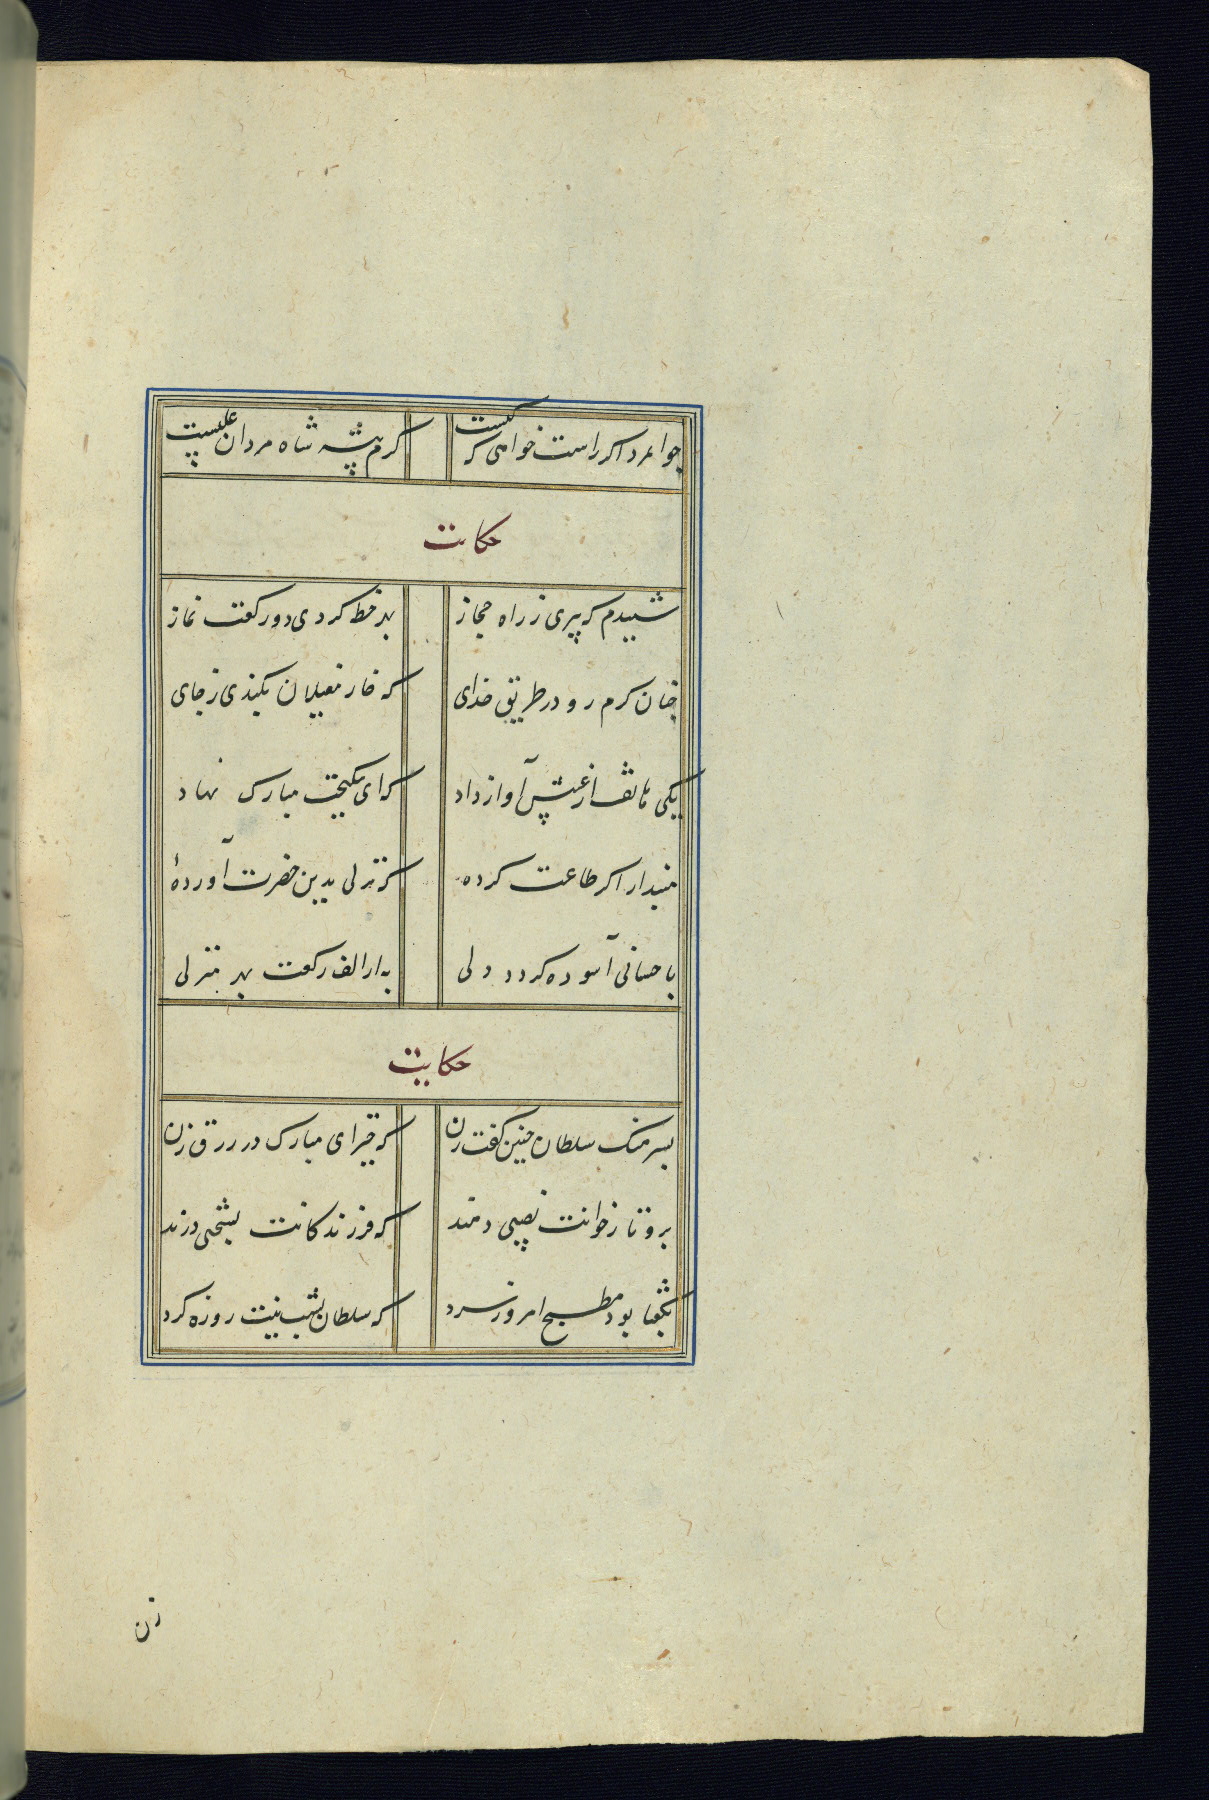 جوانمرد اگر راست خواهی که کیست کرم پیشه شاه مردان علیست
حکایت
شنیدم که پیری ز راه حجاز بهر خطوه کردی دو رکعت نماز
چنان گرم رو در طریق خدای که خار مغیلان بکندی ز جای
یکی هاتف از غیبش آواز داد که ای نیکبخت مبارک نهاد
مپندار اگر طاعت کرده که نزلی بدین حضرت آوردهٔ
باحسانی آسوده کردن دلی به از الف رکعت بهر منزلی
حکایت
بسرهنگ سلطان چنین گفت زن که خیز ای مبارک در رزق زن
برو تا ز خوانت نصیبی دهند که فرزندکانت بسختی درند
بگفتا بود مطبخ امروز سرد که سلطان بشب نیت روزه کرد
زن